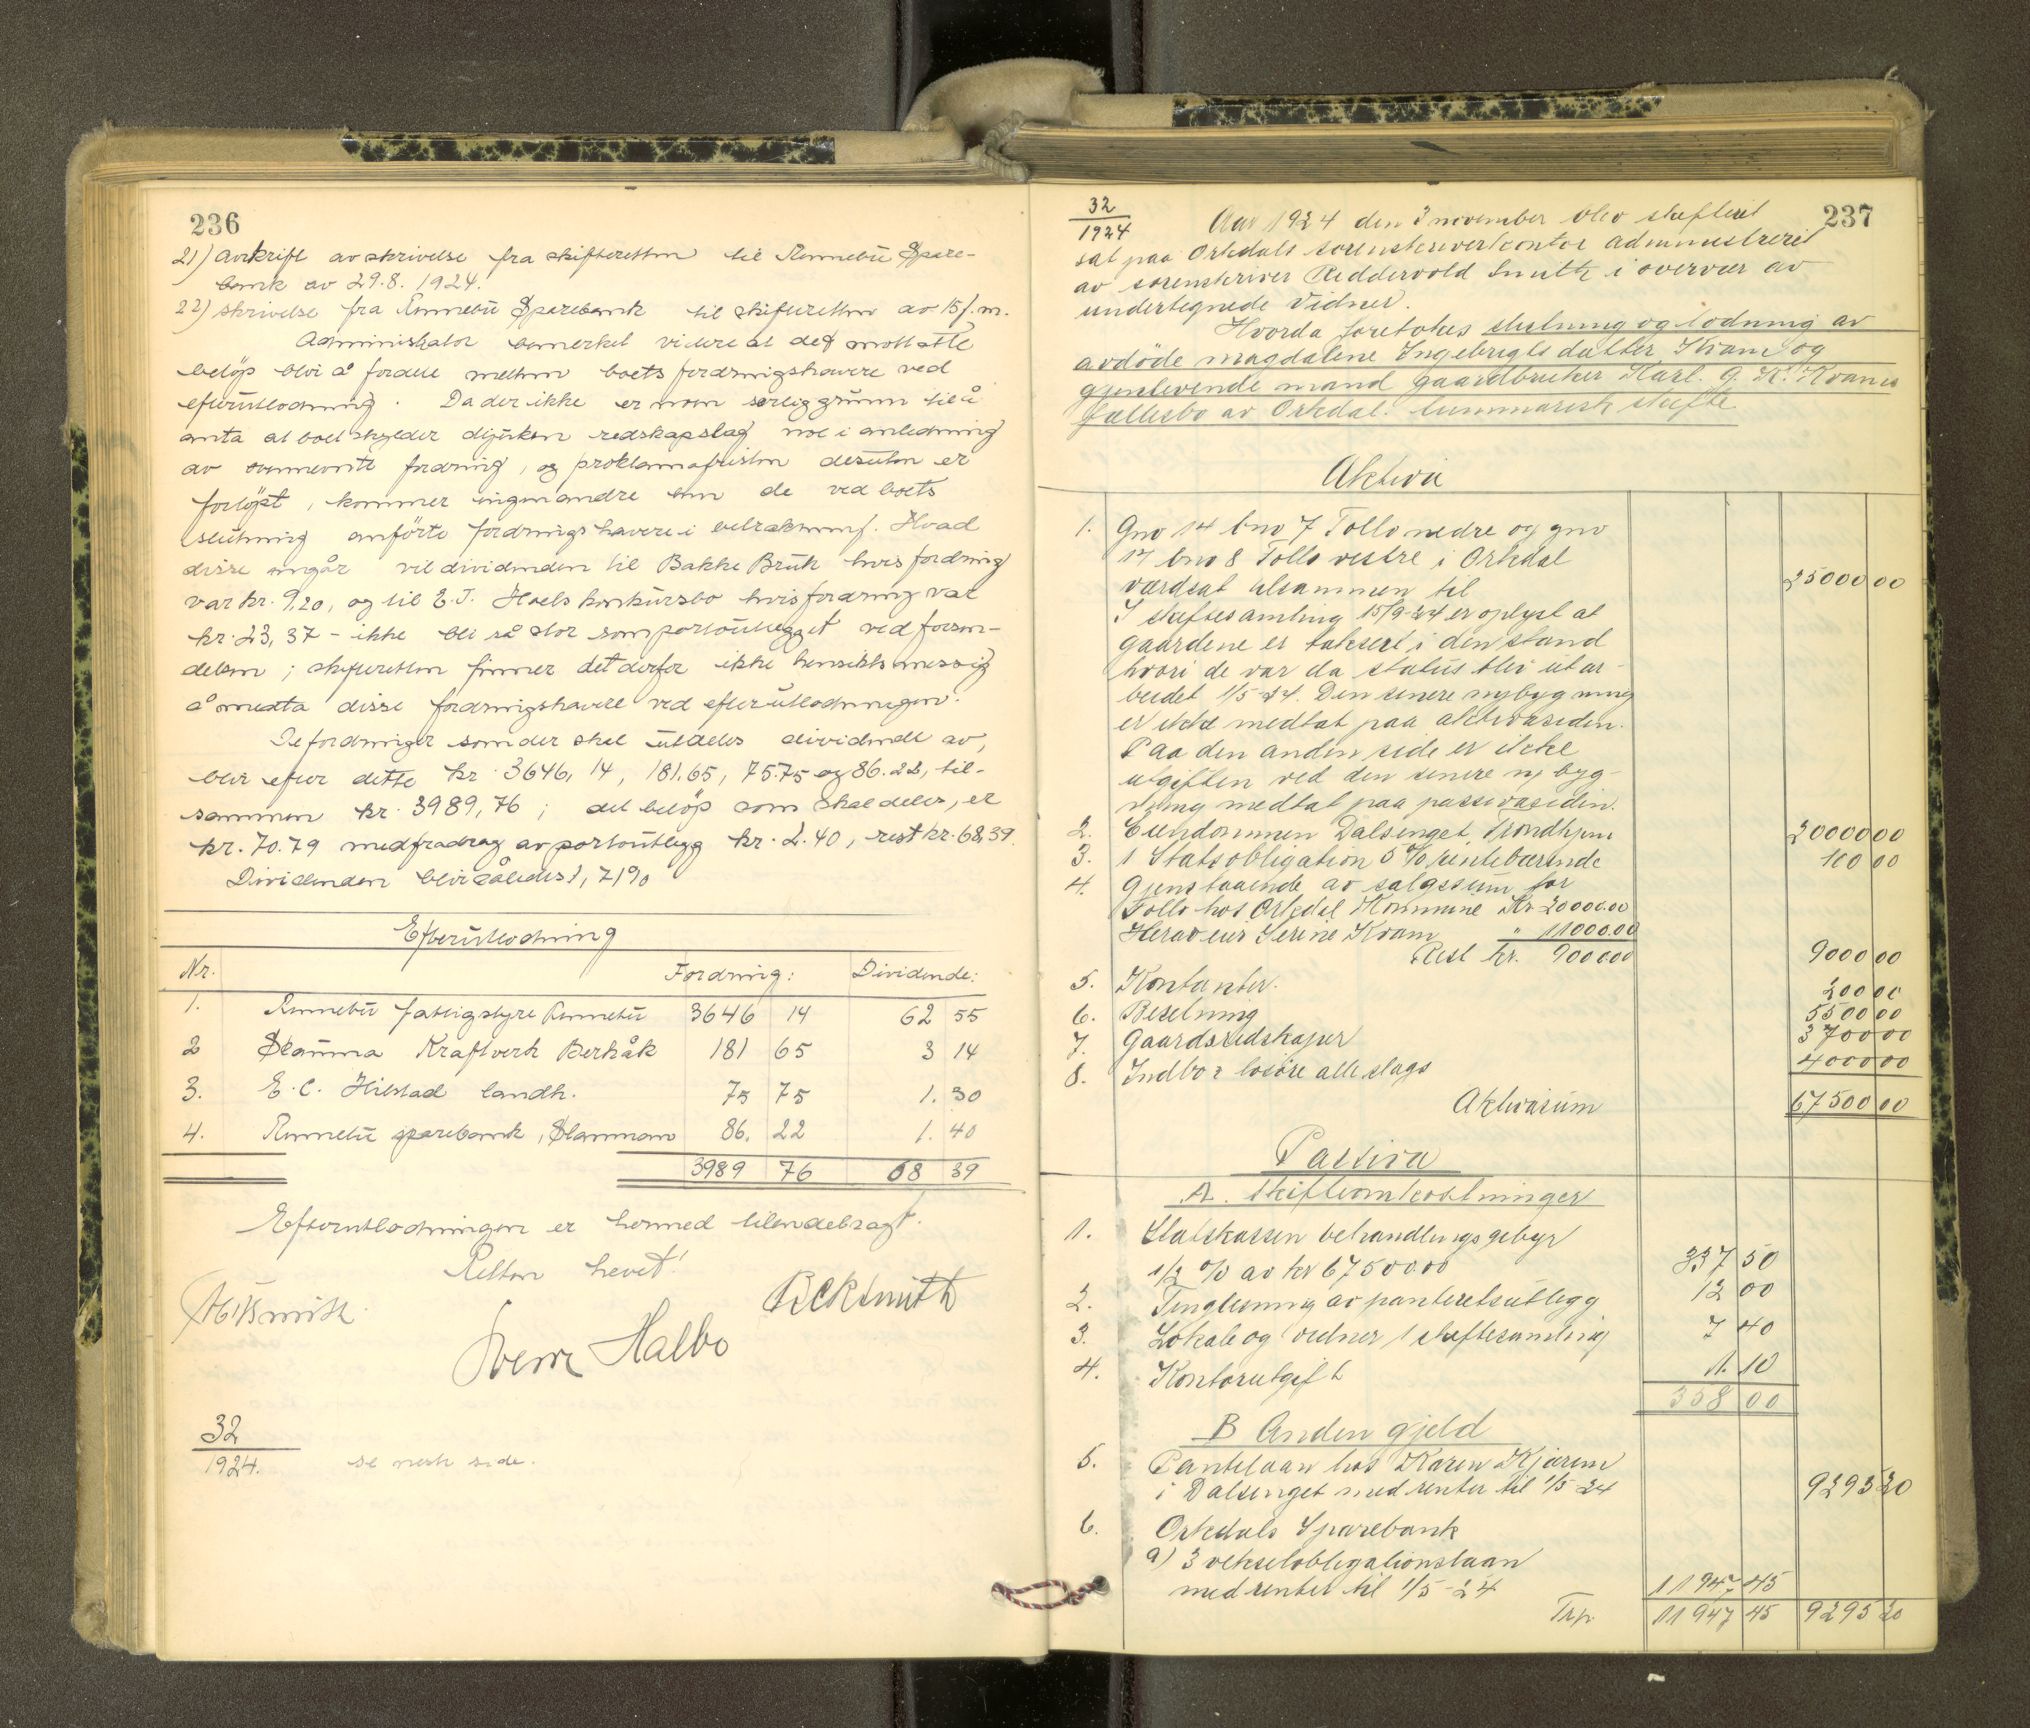 236
21) Avskrift av skrivelse fra skifteretten til Rennebu Spare-
bank av 29.8. 1924.
22) skrivelse fra Rennebu Sparebank til skifteretten av 15/. m.
Administrator bemerket videre at det mottatte
beløp blir å fordele mellem boets fordringshavere ved
efterutlodning. Da der ikke er noen særlig grunn til å
anta at boet skylder redskapslag noe i anledning
av ovennevnte fordring, og proklamafristen desuten er
forløpt, kommer ingen andre enn de ved boets
slutning anførte fordringshavere i betraktning. Hvad
disse angår vil dividenden til Bakke Bruk hvis fordring
var kr. 9.20, og til E. J. Hoels konkursbo hvis fordring var
kr. 23,37 - ikke bli så stor som portoutlegget ved forsen-
delsen; skifteretten finner det derfor ikke hensiktsmessig
å medta disse fordringshavere ved efterutlodningen.
De fordringer som der skal utdeles dividende av,
blir efter dette kr. 3646,14, 181.65, 75.75 og 86.22, til-
sammen kr. 3989,76; det beløp som skal deles, er
kr. 70.79 med fradrag av portoutlegg kr. 2.40, rest kr. 68,39.
Dividenden blir således 1,71%
Efterutlodning
Nr. Fordring: Dividende:
1. Rennebu fattigstyre Rennebu 3646 14 62 55
2 Stamma Kraftverk Berkåk 181 65 3 14
3. E. C. Hilstad landh. 75 75 1. 30
4. Rennebu sparebank, Stamnan 86. 22 1. 40
3989 76 68 39
Efterutlodningen er hermed tilendebragt.
Retten hevet!
RCKSmith
Svein Halbo
32
1924. se neste side.
32
1924
237
Aar 1924 den 3 november blev skifteret
sat paa Orkdals sorenskriverkontor administreret
av sorenskriver Reddervold Smith i overvær av
undertegnede Vidner.
Hvorda foretokes slutning og lodning av
avdøde Magdalene Ingebrigtsdatter Kvam og
gjenlevende mand gaardbruker Karl. G. K. Kvams
fællesbo av Orkdal. Summarisk skifte
Aktiva
1. Gno 14 bno 7 Follo nedre og gno
17 bno 8 Follo vestre i Orkdal
værdsat tilsammen til 25000 00
I skiftesamling 15/9-24 er oplyst at
gaardene er taksert i den stand
hvori de var da status blev utar-
beidet 1/5-24. Den senere nybygning
er ikke medtat paa aktivasiden.
Paa den anden side er ikke
utgiften ved den senere nybyg-
ning medtat paa passivasiden.
2. Eiendommen Dalsenget, Trondhjem 20000 00
3. 1 Statsobligation 5 % rentebærende 100 00
4. Gjenstaaende av salgssum for
Follo hos Orkdal Kommune Kr 20000.00
Herav eier Serine Kvam " 11000.00
Rest kr. 9000.00 9000 00
5. Kontanter. 200 00
6. Besetning 5500 00
7. Gaardsredskaper 3700 00
8. Indbo & løsøre alle slags 4000 00
Aktivasum 67500 00
Passiva
A. Skifteomkostninger
1. Statskassen behandlingsgebyr
1/2 % av kr 67500.00 337 50
2. Tinglesning av panteretsutlegg 12 00
3. Lokale og vidner 1 skiftesamling 7 40
4. Kontorutgift 1. 10
358 00
B Anden gjeld
5. Pantelaan hos Karen Kjørem
i Dalsenget med renter til 1/5 24 9293 20
6. Orkdals Sparebank
a) 3 vekselobligationslaan
med renter til 1/5-24 11947 45
Trp. 11947 45 9293 20